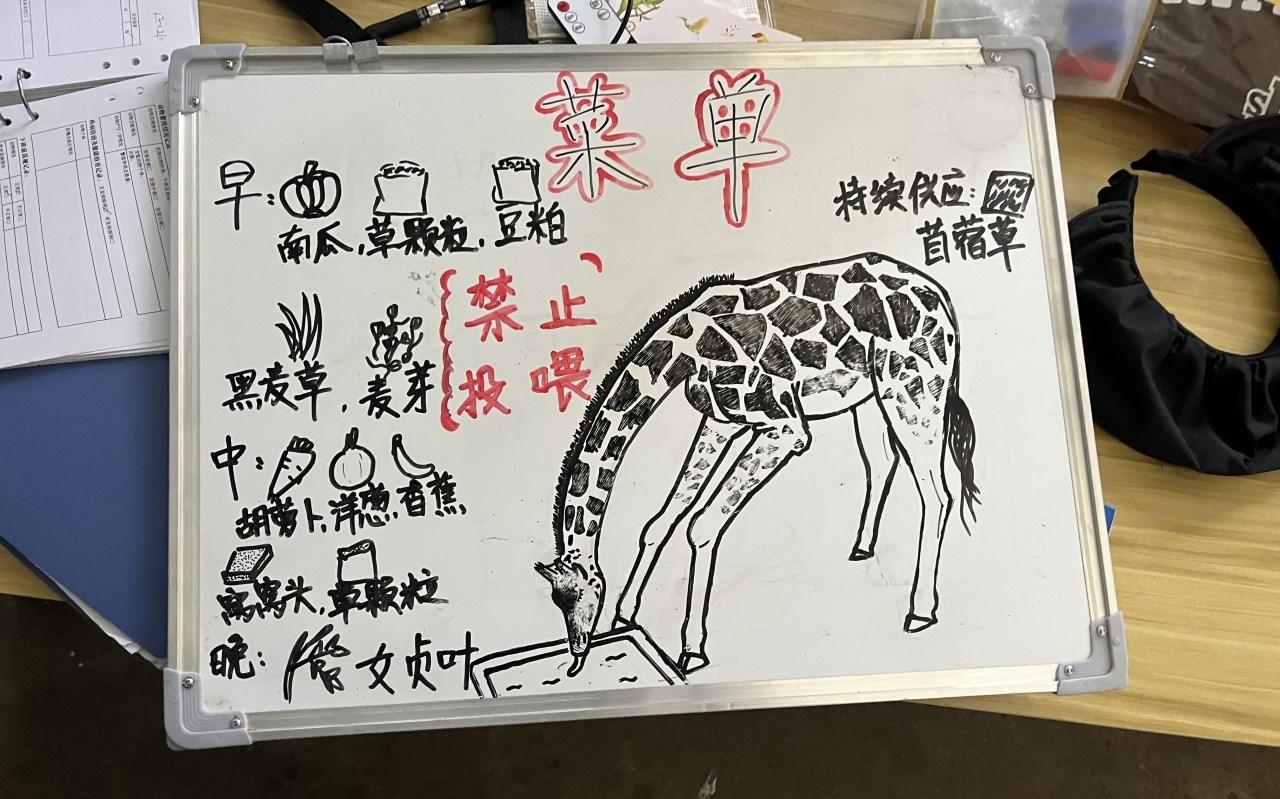 菜单
早：
南瓜，草颗粒，豆粕
持续供应：
苜蓿草
禁止
投喂
黑麦草，麦芽
中：
胡萝卜，洋葱，香蕉
窝窝头，草颗粒
晚：女贞叶